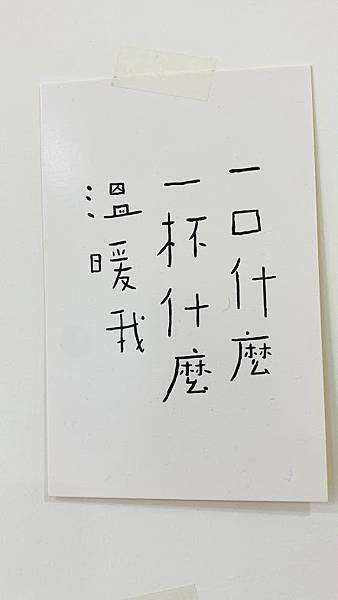 一口什麼
一杯什麼
溫暖我